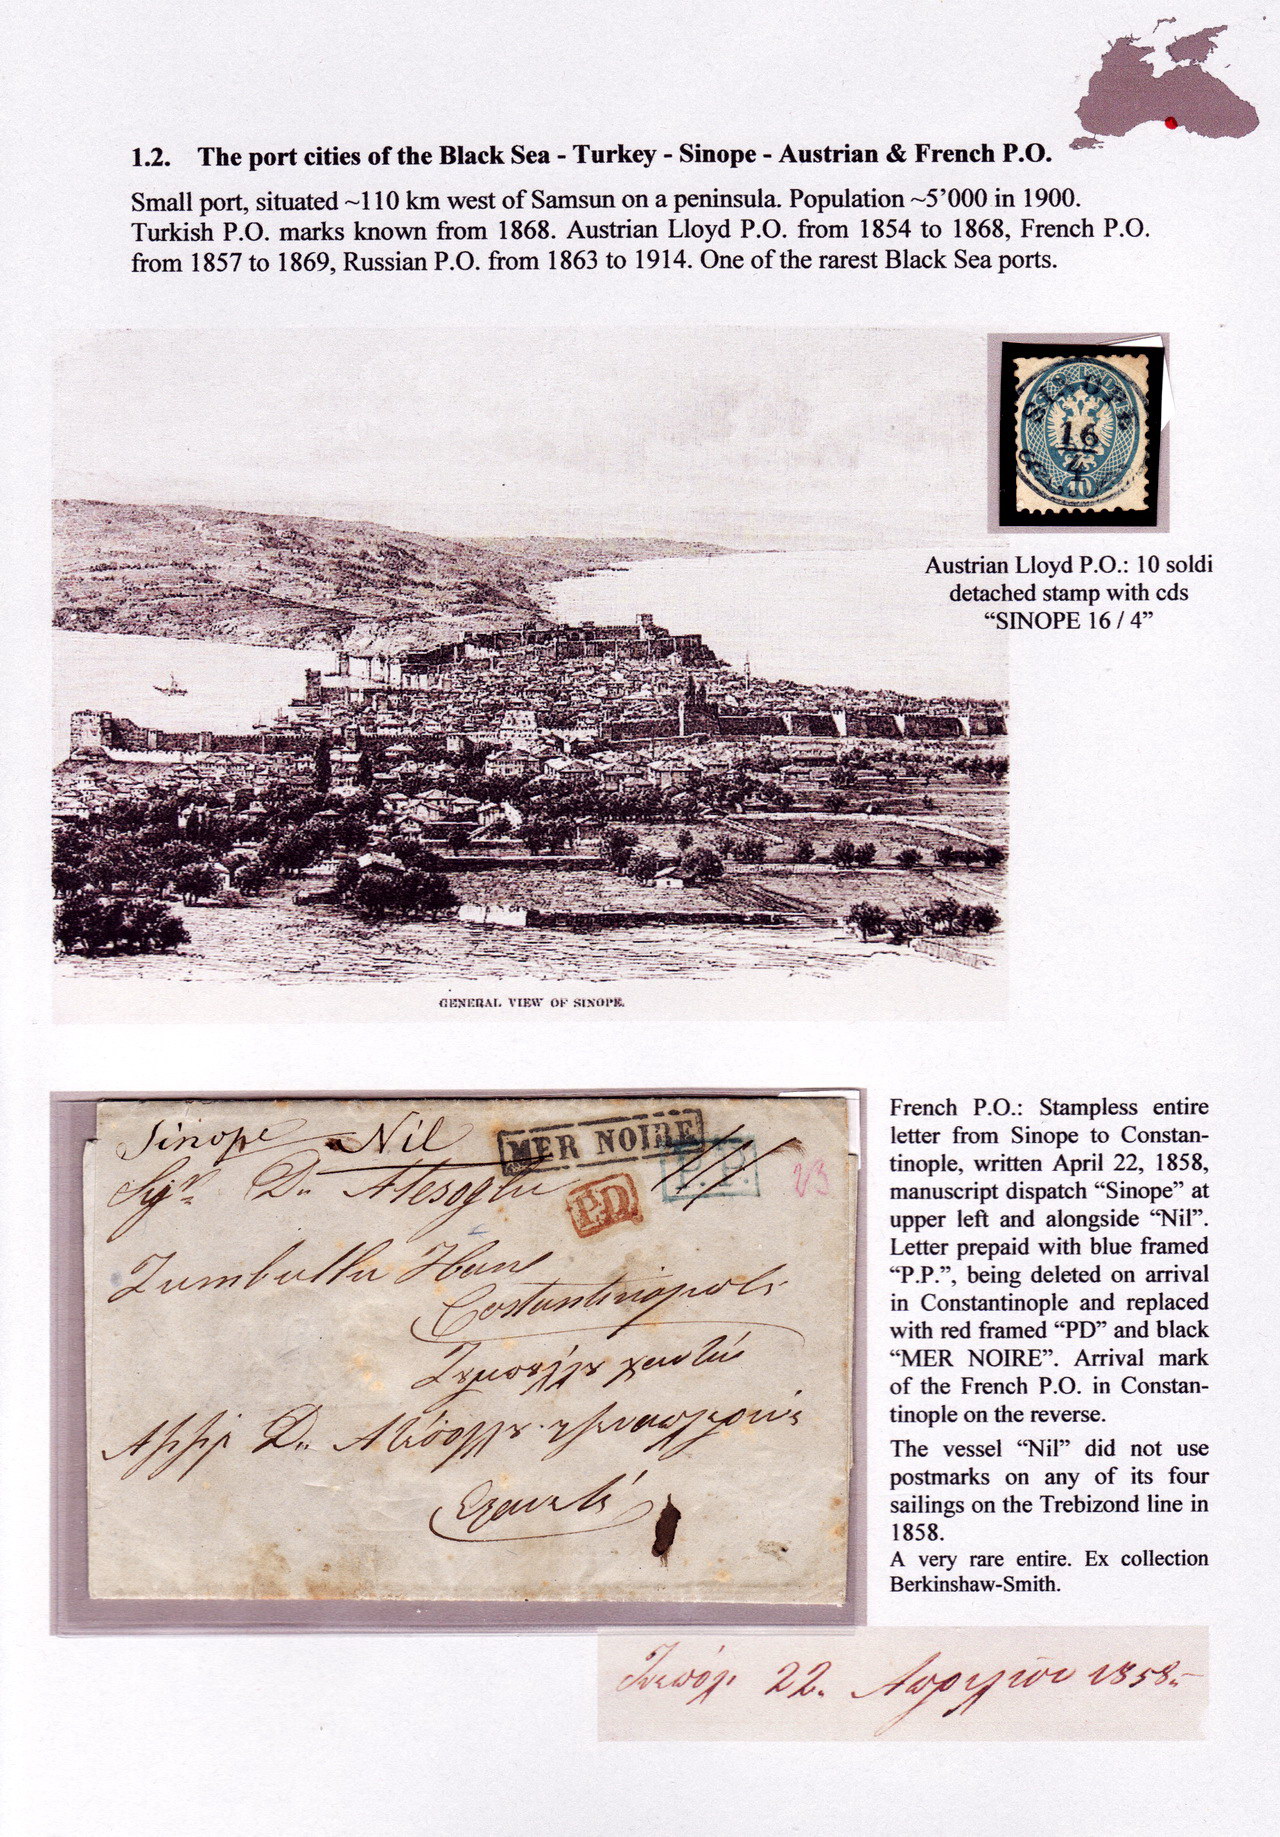 1.2. The port cities of the Black Sea - Turkey - Sinope - Austrian & French P.O.
Small port, situated ~110 km west of Samsun on a peninsula. Population ~5’000 in 1900.
Turkish P.O. marks known from 1868. Austrian Lloyd P.O. from 1854 to 1868, French P.O.
from 1857 to 1869, Russian P.O. from 1863 to 1914. One of the rarest Black Sea ports.
SINOPE
16
4
10
Austrian Lloyd P.O.: 10 soldi
detached stamp with cds
“SINOPE 16 / 4”
GENERAL VIEW OF SINOPE.
Sinope Nil
MER NOIRE
P.P.
P.D.
23
Sigr. Dn. Atesoglu
Zumbullu Han
Costantinopoli
French P.O.: Stampless entire
letter from Sinope to Constan-
tinople, written April 22, 1858,
manuscript dispatch “Sinope” at
upper left and alongside “Nil”.
Letter prepaid with blue framed
“P.P.”, being deleted on arrival
in Constantinople and replaced
with red framed “PD” and black
“MER NOIRE”. Arrival mark
of the French P.O. in Constan-
tinople on the reverse.
The vessel “Nil” did not use
postmarks on any of its four
sailings on the Trebizond line in
1858.
A very rare entire. Ex collection
Berkinshaw-Smith.
22. Απριλίου 1858